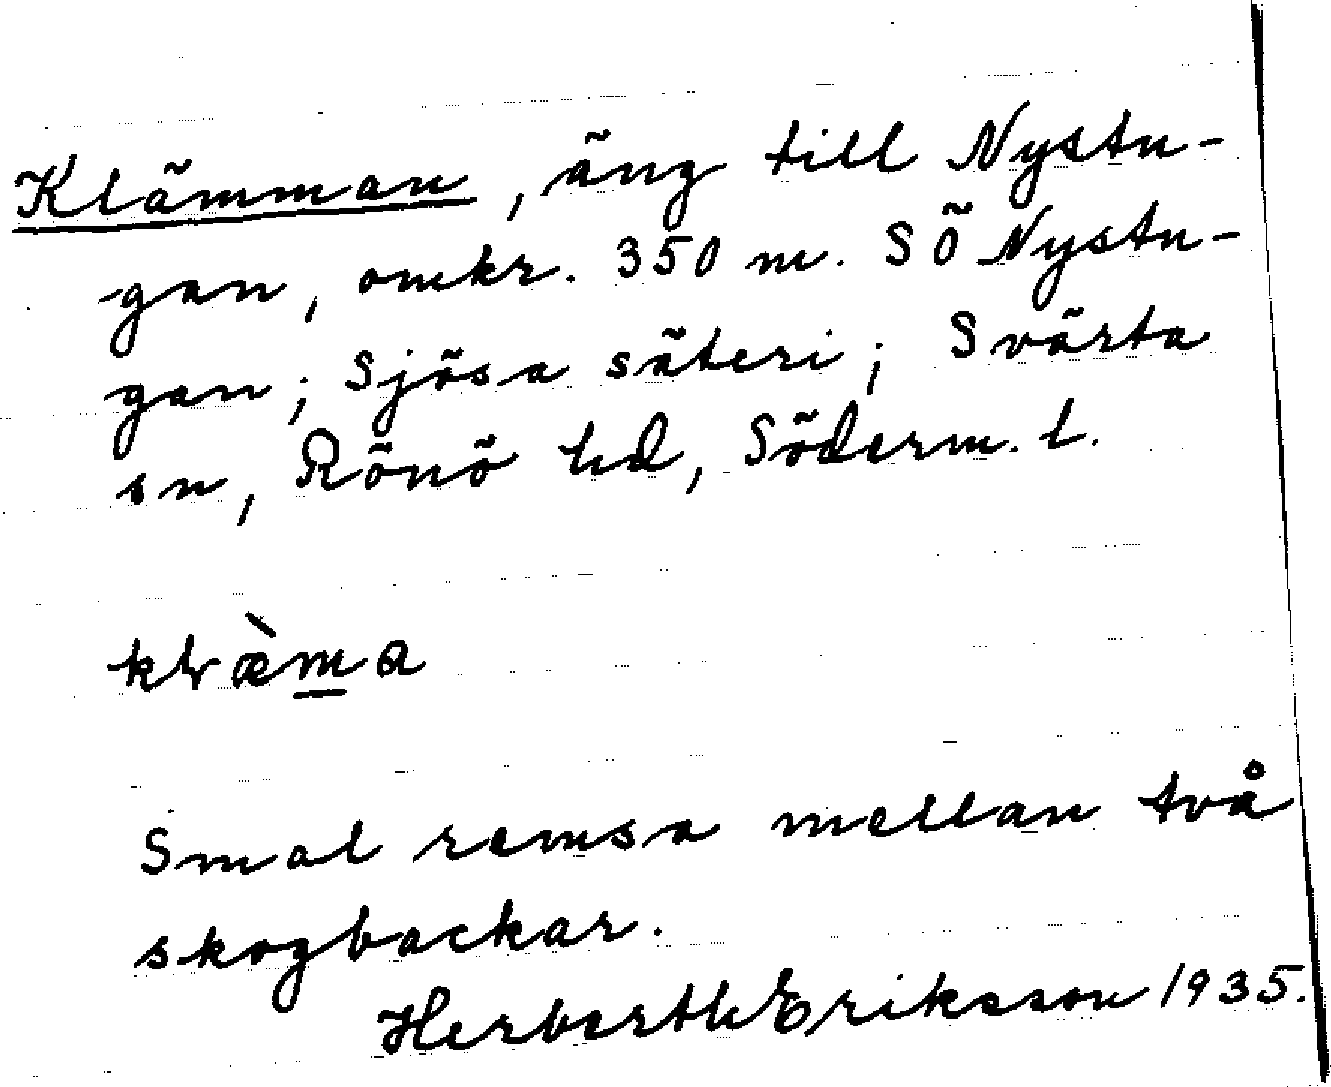 Klämman, äng till Nystu-
gan, omkr. 350 m. SÖ Nystu-
gan; Sjösa säteri; Svärta
sn, Rönö hd, Söderm. l.
klæ̀ma
Smal remsa mellan två
skogbackar.
Herberth Eriksson 1935.